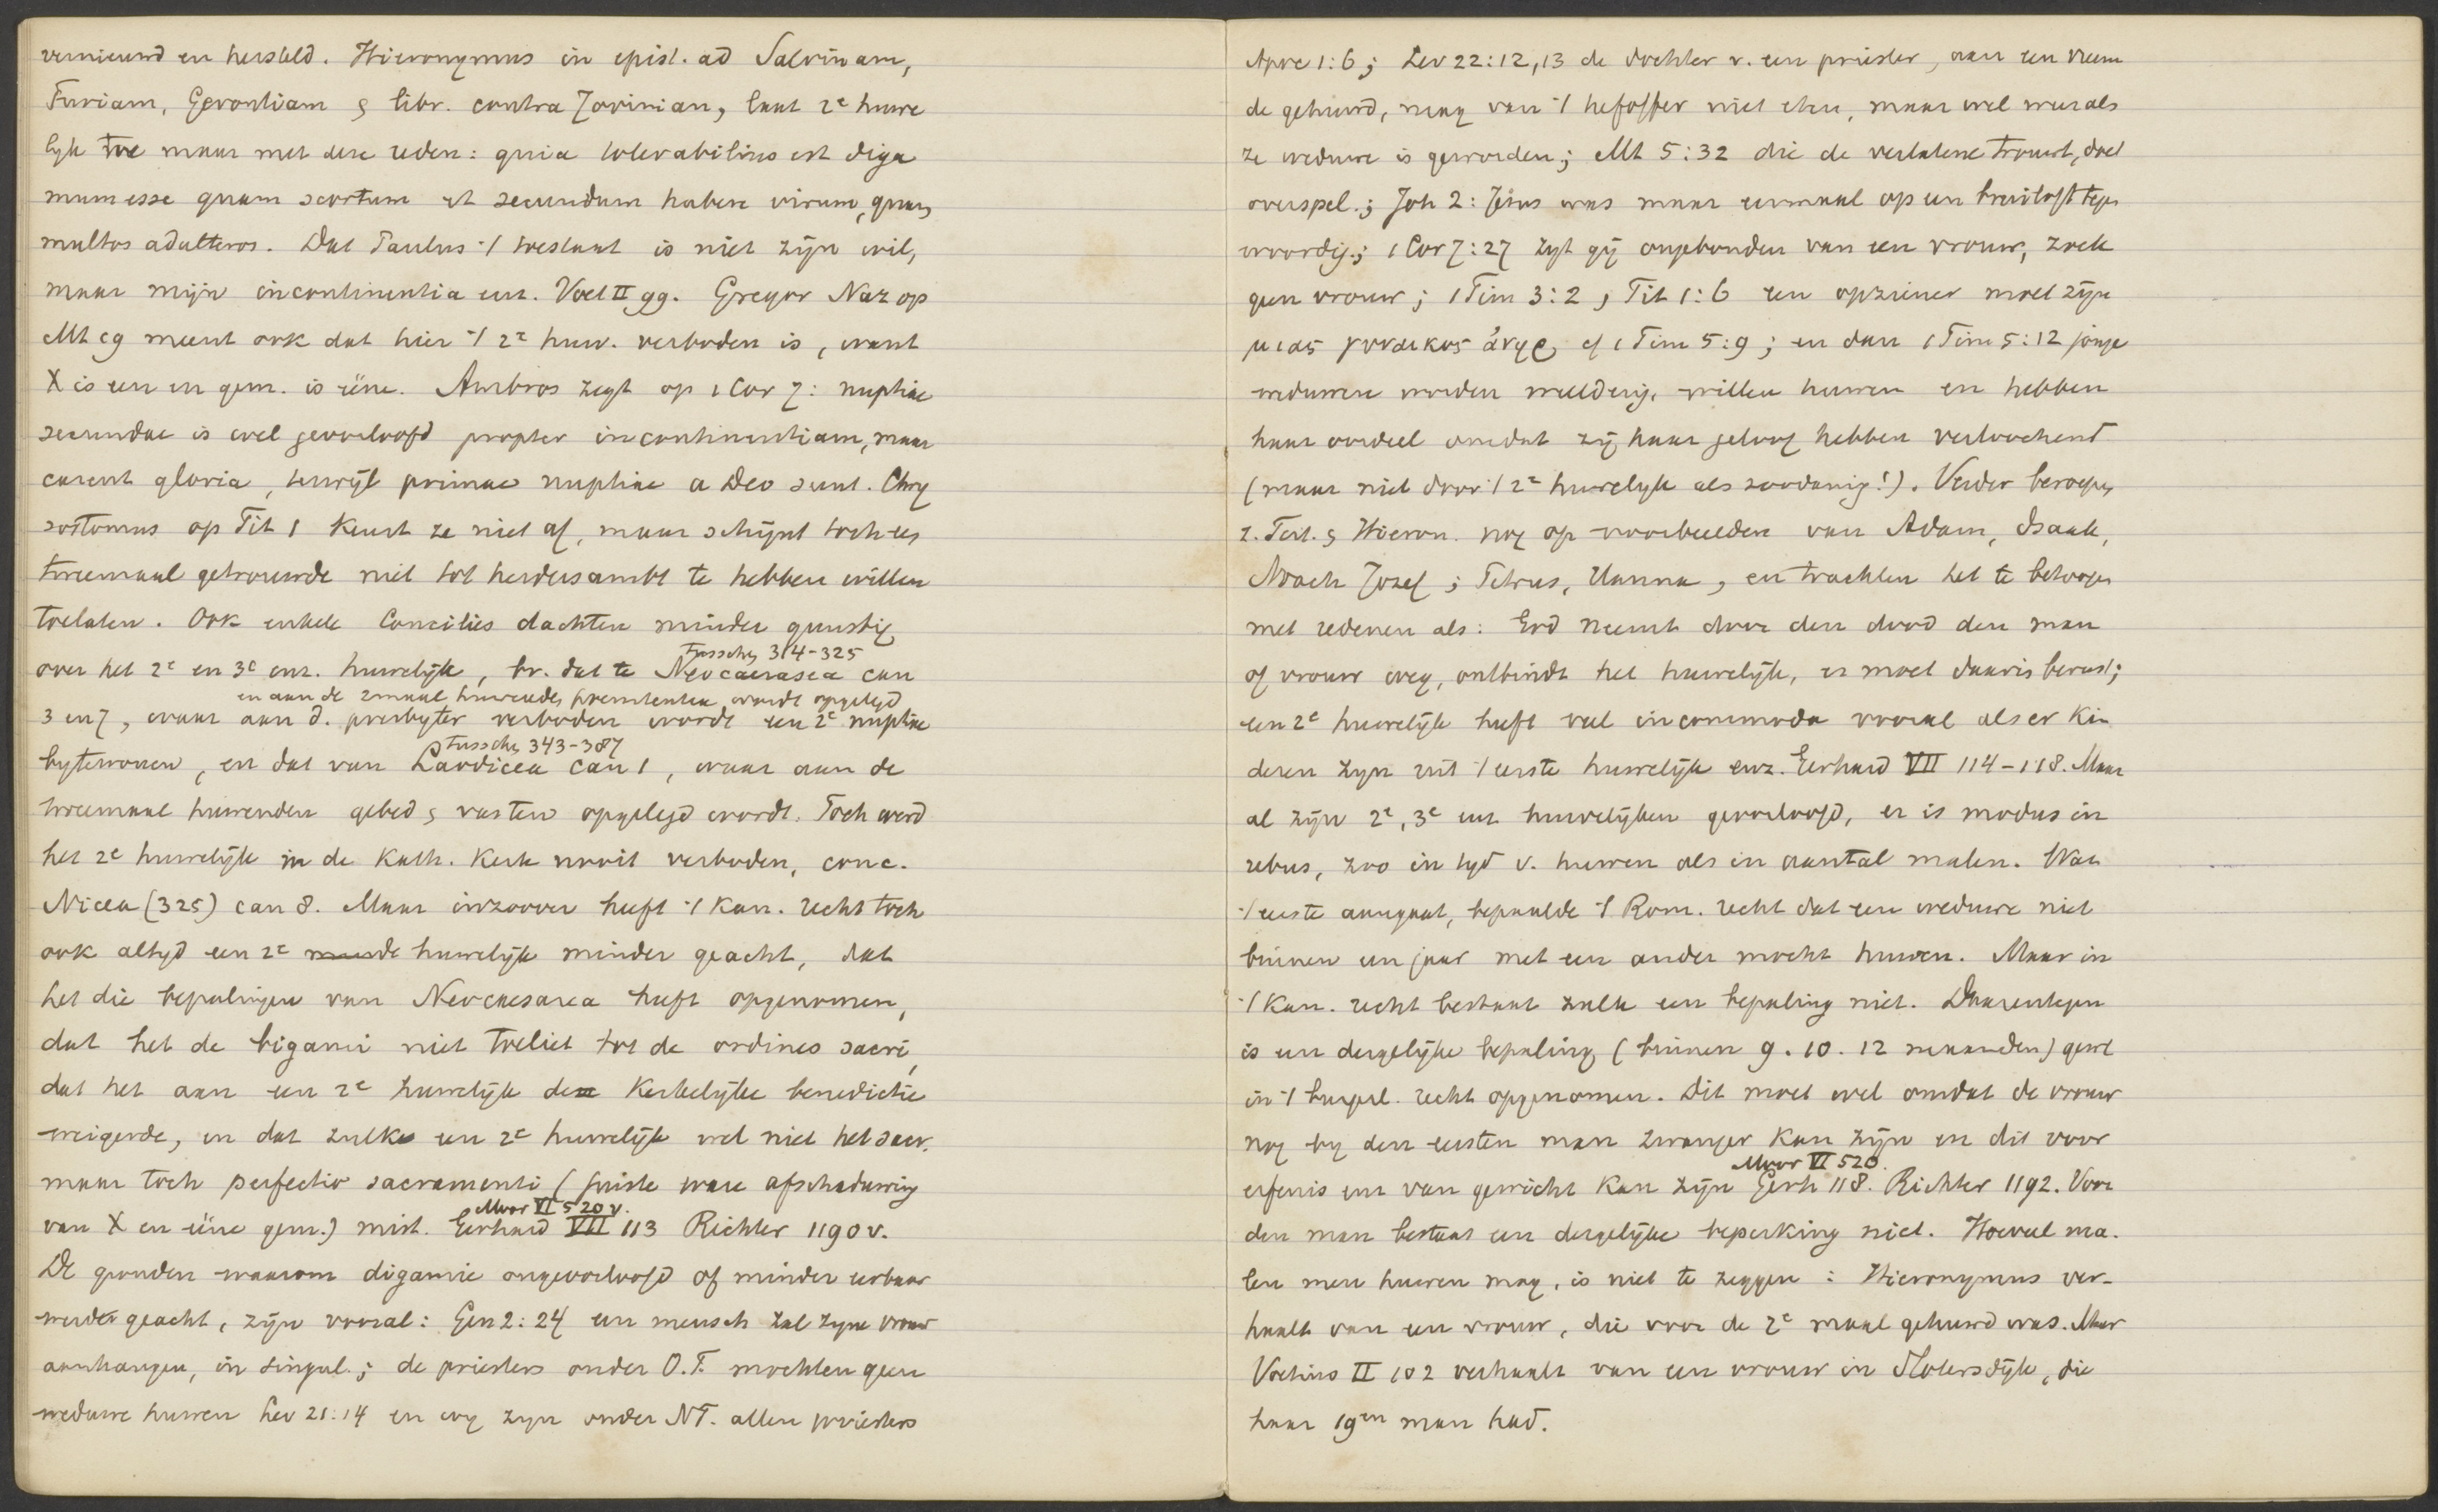 vernieuwd en hersteld. Hieronymus in epist. ad Salvinam,
Furiam, Gerontiam & libr. contra Jovinian, laat 2e huwe
lijk toe maar met deze reden: quia tolerabilius est diga
mum esse quam scortum et secundum habere virum, quam
multos adulteros. Dat Paulus 't toestaat is niet zijn wil,
maar mijn incontinentia enz. Voet II 99. Gregor Naz op
Mt 19 meent ook dat hier 't 2e huw. verboden is, want
X is een en gem. is ééne. Ambros zegt op 1 Cor 7: nuptiae
secundae is wel geoorloofd propter incontinentiam, maar
carent gloria, terwijl primae nuptiae a Deo sunt. Chry
sostomus op Tit 1 keurt ze niet af, maar schijnt toch een
tweemaal getrouwde niet tot herdersambt te hebben willen
toelaten. Ook enkele Concilies dachten minder gunstig
tusschen 314-325
over het 2e en 3e enz. huwelijk, bv. dat te Neocaesarea can
en aan de 2maal huwenden poenitentie wordt opgelegd
3 en 7, waar aan d. presbyter verboden wordt een 2e nuptiae
tusschen 343-387
bytewonen, en dat van Laodicea can 1, waar aan de
tweemaal huwenden gebed & vasten opgelegd wordt. Toch werd
het 2e huwelijk in de Kath. Kerk nooit verboden, conc.
Nicea (325) can 8. Maar inzoover heeft 't kan. recht toch
ook altyd een 2e huwelijk minder geacht, dat
het die bepalingen van Neocaesarea heeft opgenomen,
dat het de bigami niet toeliet tot de ordines sacri,
dat het aan een 2e huwelijk de Kerkelijke benedictie
weigerde, en dat zulk een 2e huwelijk wel niet het sacr.
maar toch perfectio sacramenti (juiste ware afschaduwing
Moor VI 520 v.
van X en ééne gem.) mist. Gerhard VII 113 Richter 1190 v.
De gronden waarom digamie ongeoorloofd of minder eerbaar
werden geacht, zijn vooral: Gen 2:24 een mensch zal zyne vrouw
aanhangen, in singul.; de priesters onder O.T. mochten geen
weduwe huwen Lev 21:14 en wy zyn onder NT. allen priesters
Apoc 1:6; Lev 22:12,13 de dochter v. een priester, aan een vreem
de gehuwd, mag van 't hefoffer niet eten, maar wel weer als
ze weduwe is geworden; Mt 5:32 die de verlatene trouwt, doet
overspel.; Joh 2: Jezus was maar eenmaal op een bruiloft tegen
woordig.; 1 Cor 7:27 zyt gij ongebonden van een vrouw, zoek
geen vrouw; 1 Tim 3:2, Tit 1:6 een opziener moet zijn
μιας γυναικος ἀνηρ, cf 1 Tim 5:9; en dan 1 Tim 5:12 jonge
weduwen worden weelderig, willen huwen en hebben
haar oordeel omdat zij haar geloof hebben verloochend
(maar niet door 't 2e huwelyk als zoodanig!). Verder beroepen
z. Tert. & Hieron. nog op voorbeelden van Adam, Isaak,
Noach Jozef; Petrus, Hanna, en trachten het te betoogen
met redenen als: God neemt door den dood den man
of vrouw weg, ontbindt het huwelijk, er moet daarin berust;
een 2e huwelijk heeft veel incommoda vooral als er kin
deren zyn uit 't eerste huwelijk enz. Gerhard VII 114-118. Maar
al zijn 2e, 3e enz huwelijken geoorloofd, er is modus in
rebus, zoo in tyd v. huwen als in aantal malen. Wat
't eerste aangaat, bepaalde 't Rom. recht dat een weduwe niet
binnen een jaar met een ander mocht huwen. Maar in
't kan. recht bestaat zulk een bepaling niet. Daarentegen
is een dergelijke bepaling (binnen 9. 10. 12 maanden) gewl
in 't burgerl. recht opgenomen. Dit moet wel omdat de vrouw
nog by den eersten man zwanger kan zijn en dit voor
Moor VI 520.
erfenis enz van gewicht kan zijn Gerh 118. Richter 1192. Voor
den man bestaat een dergelijke beperking niet. Hoeveel ma-
len men huwen mag, is niet te zeggen: Hieronymus ver-
haalt van een vrouw, die voor de 2e maal gehuwd was. Maar
Voetius II 102 verhaalt van een vrouw in Slotersdijk, die
haar 19en man had.